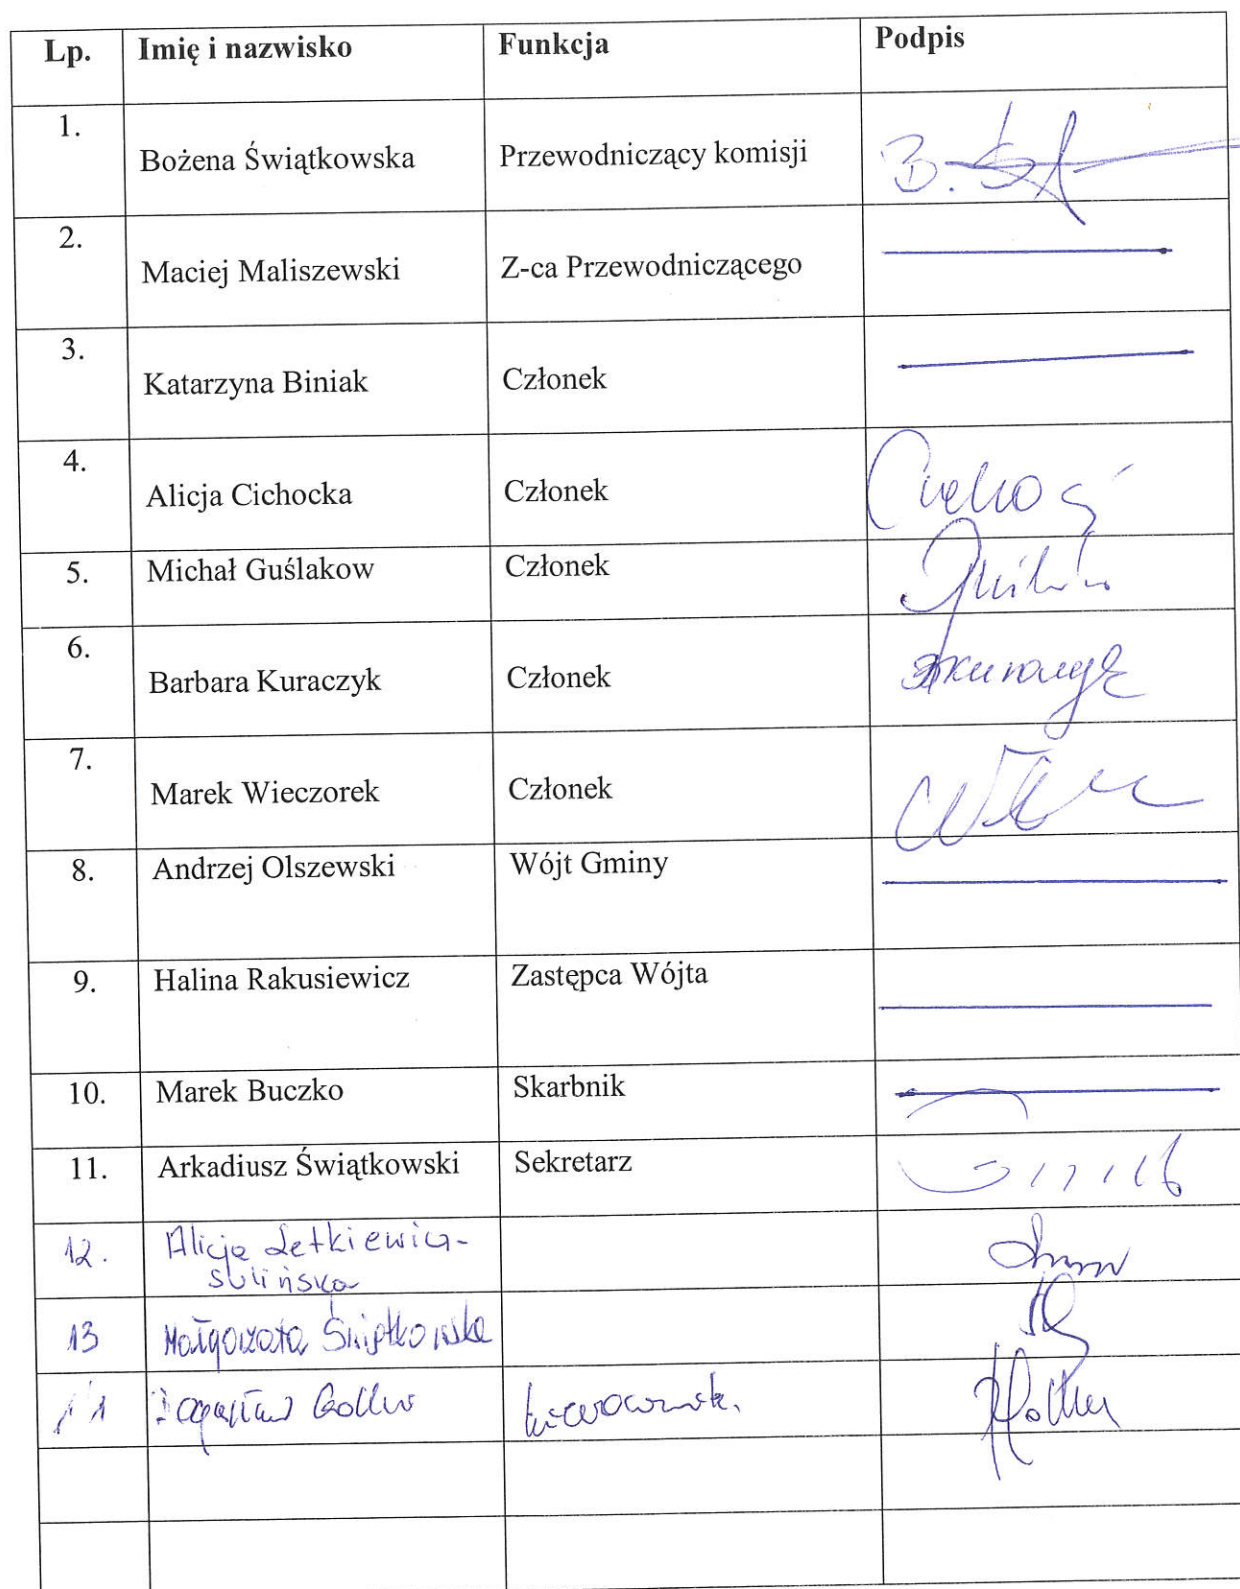 Lp. Imię i nazwisko Funkcja Podpis
1. Bożena Świątkowska Przewodniczący komisji
2. Maciej Maliszewski Z-ca Przewodniczącego
3. Katarzyna Biniak Członek
4. Alicja Cichocka Członek
5. Michał Guślakow Członek
6. Barbara Kuraczyk Członek
7. Marek Wieczorek Członek
8. Andrzej Olszewski Wójt Gminy
9. Halina Rakusiewicz Zastępca Wójta
10. Marek Buczko Skarbnik
11. Arkadiusz Świątkowski Sekretarz
12. Alicja Letkiewicz-
Sulińska
13 Małgorzata Świątkowska